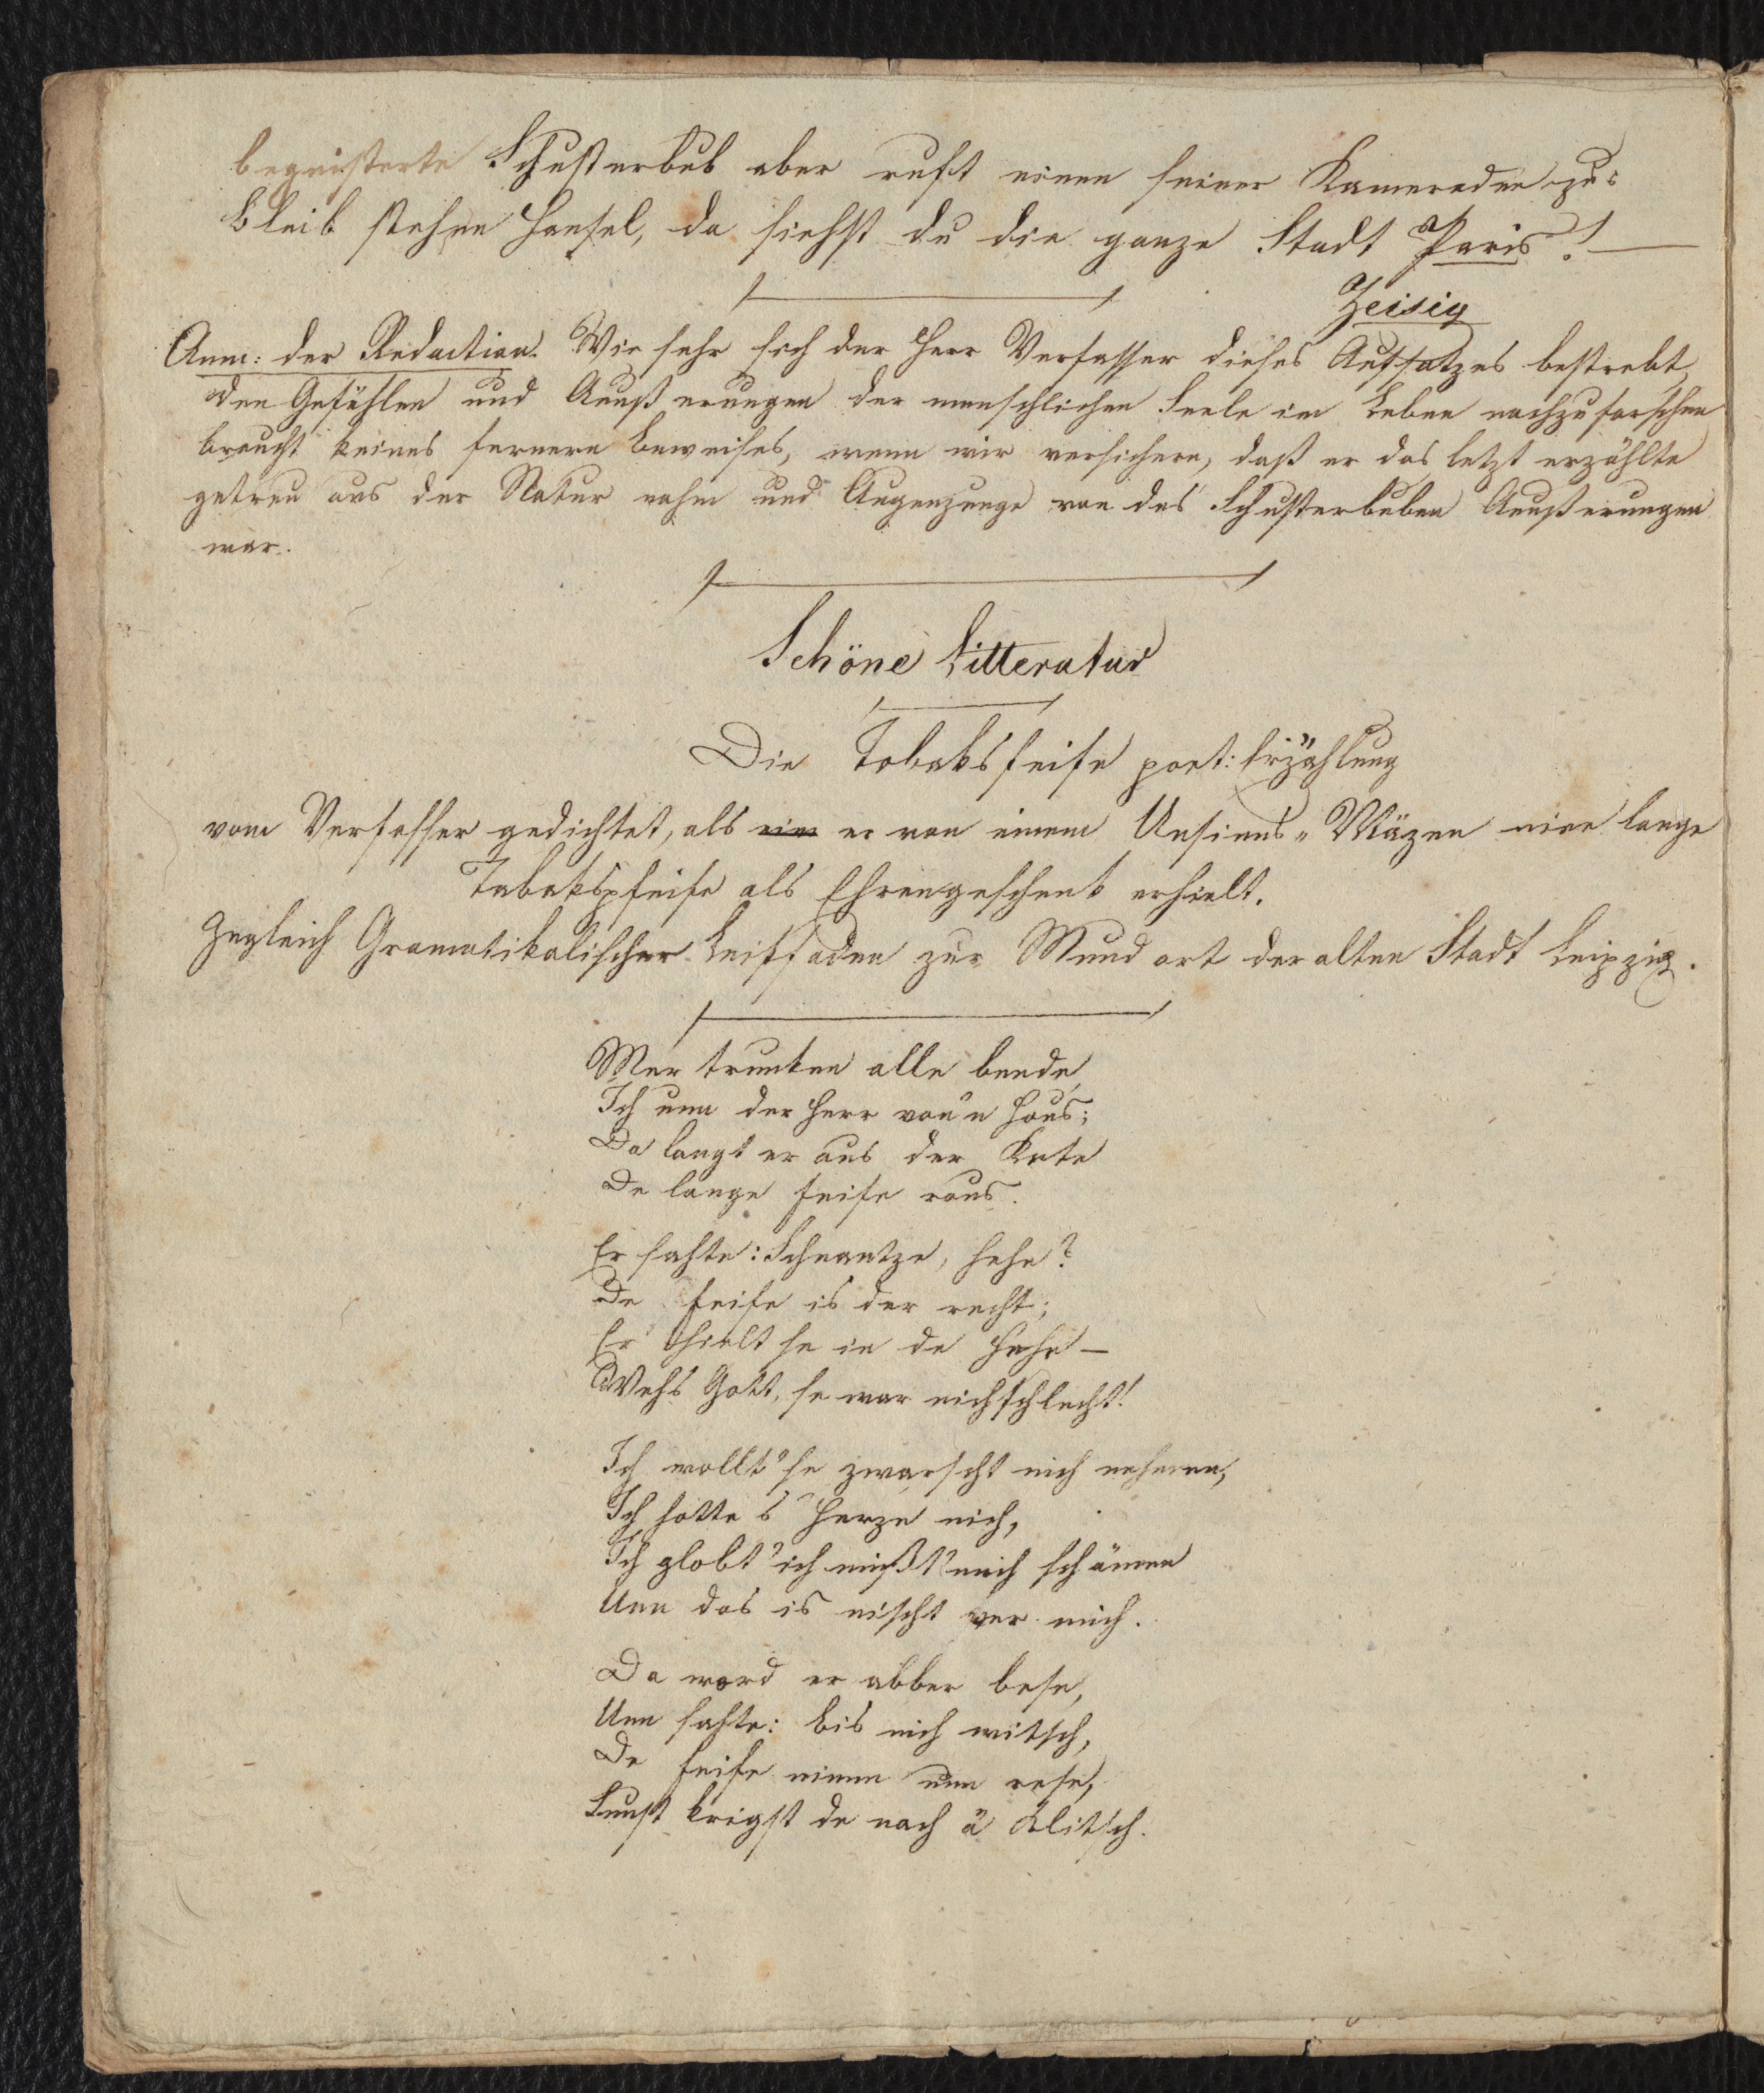 begeisterte Schusterbub aber ruft einen seiner Kameraden zu:
bleib stehen Hansel, da siehst du die ganze Stadt Paris! —
Zeisig
Anm: der Redaction. Wie sehr sich der Herr Verfasser dieses Aufsatzes bestrebt,
den Gefühlen und Aeußerungen der menschlichen Seele im Leben nachzuforschen
braucht keines fernern Beweises, wenn wir versichern, daß er das letzt erzählte
getreu aus der Natur nahm und Augenzeuge von des Schusterbuben Aeußerungen
war.
Schöne Litteratur
Die Tobaksfeife poet: Erzählung
vom Verfasser gedichtet, als ein er von einem Unsinns-Mäzen eine lange
Tabakspfeife als Ehrengeschenk erhielt.
Zugleich Gramatikalischer Leitfaden zur Mundart der alten Stadt Leipzig.
Mer trunken alle beede,
Ich unn der Herr von'n Hous;
Da langt er aus der Kete
De lange Feife raus.
Er sahte: Schnautze, hehe?
De Feife is der recht;
Er hielt se in de Hehe —
Wehs Gott, se war nich schlecht!
Ich wollt' se zwarscht nich nehmen,
Ich hatte 's Herze nich,
Ich globt' ich mißt' mich schämen
Unn das is nischt ver mich.
Da word er abber bese,
Unn sahte: bis nich witsch,
De Feife nimm unn rese,
Sunst krigst de noch ä Klitsch.